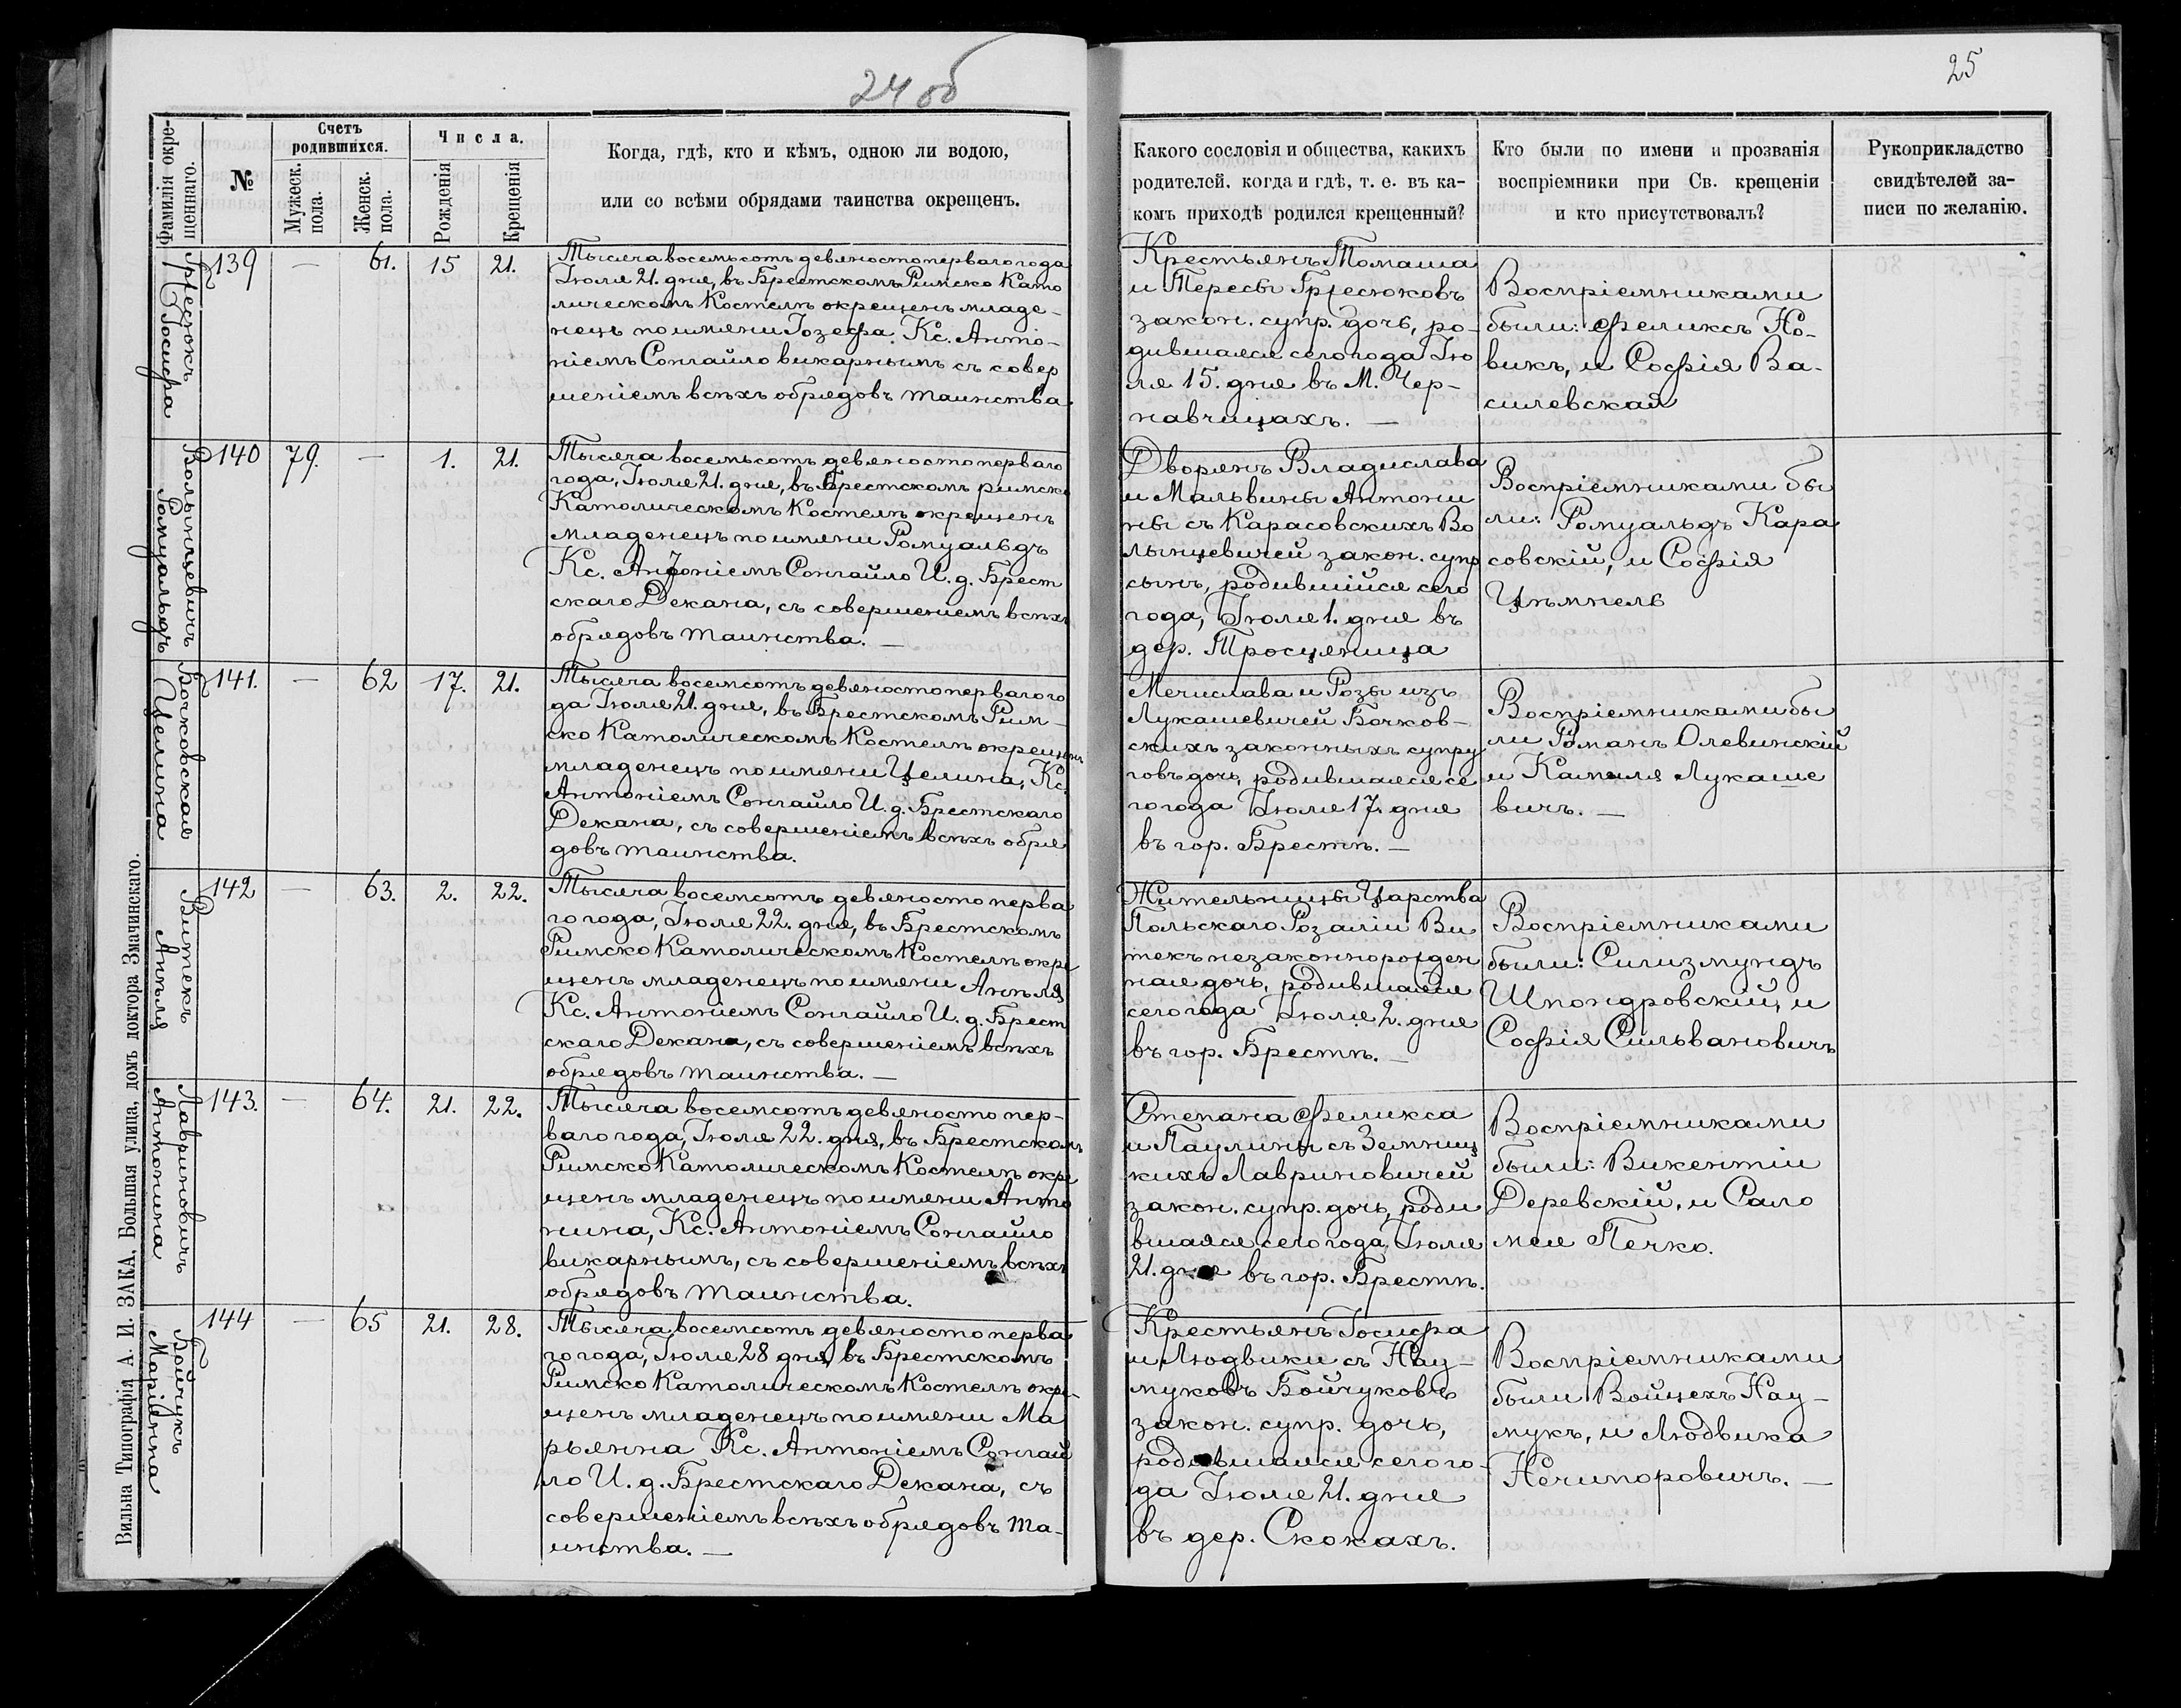 24 об
25
Фамилія новокре-
щеннаго.
№
Счетъ
родившихся.
Мужеск.
пола.
Женск.
пола.
Числа.
Рожденія
Крещенія
Когда, гдѣ, кто и кѣмъ, одною ли водою,
или со всѣми обрядами таинства окрещенъ.
Какого сословія и общества, какихъ
родителей, когда и гдѣ, т. е. въ ка-
комъ приходѣ родился крещенный?
Кто были по имени и прозванія
воспріемники при Св. крещеніи
и кто присутствовалъ?
Рукоприкладство
свидѣтелей за-
писи по желанію.
139 — 61. 15 21.
Тысяча восемьсотъ девяностоперваго года
Іюля 21. дня, въ Брестскомъ Римско Като
лическомъ Костелѣ окрещенъ младе-
нецъ по имени Іозефа. Кс. Анто-
ніемъ Сонгайло викарнымъ съ совер
шеніемъ всѣхъ обрядовъ таинства
Крестьянъ Томаша
и Тересы
закон. супр. дочь, ро-
дившаяся сего года Ію
ля 15. дня въ М. Чер-
навчицахъ. —
Воспріемниками
были: Феликсъ Но-
викъ, и Софія Ва-
силевская
Волынцевичъ
Ромуальдъ
140 79. — 1. 21.
Тысяча восемьсотъ девяностоперваго
года, Іюля 21. дня, въ Брестскомъ римско
Католическомъ Костелѣ окрещенъ
младенецъ по имени Ромуальдъ
Кс. Антоніемъ Сонгайло И. д. Брест
скаго Декана, съ совершеніемъ всѣхъ
обрядовъ таинства. —
Дворянъ Владислава
и Мальвины Антони
ны съ Карасовскихъ Во
лынцевичей закон. супр
сынъ, родившійся сего
года, Іюля 1. дня въ
дер. Тросцяница
Воспріемниками бы
ли: Ромуальдъ Кара
совскій, и Софія
Бочковская
Целина
141. — 62 17. 21.
Тысяча восемсотъ девяностоперваго го
да Іюля 21. дня, въ Брестскомъ Рим-
ско Католическомъ Костелѣ окрещенъ
младенецъ по имени Целина, Кс.
Антоніемъ Сонгайло И. д. Брестскаго
Декана, съ совершеніемъ всѣхъ обря
довъ таинства.
Мечислава и Розы изъ
Лукашевичей Бочков-
скихъ законныхъ супру
говъ дочь, родившаяся се
го года Іюля 17. дня
въ гор. Брестѣ. —
Воспріемниками бы
ли Романъ Олевинскій
и Камиля Лукаше
вичъ. —
Витекъ
Анѣля
142 — 63. 2. 22.
Тысяча восемсотъ девяносто перва
го года, Іюля 22. дня, въ Брестскомъ
Римско Католическомъ Костелѣ окре
щенъ младенецъ по имени Анѣля
Кс. Антоніемъ Сонгайло И. д. Брест
скаго Декана, съ совершеніемъ всѣхъ
обрядовъ таинства. —
Жительницы Царства
Польскаго Розаліи Ви
текъ незаконнорожден
ная дочь, родившаяся
сего года Іюля 2. дня
въ гор. Брестѣ. —
Воспріемниками
были: Сигизмундъ
Шпондровскій, и
Софія Сильвановичъ
Лавриновичъ
Антонина
143. — 64. 21. 22.
Тысяча восемсотъ девяносто пер-
ваго года, Іюля 22. дня, въ Брестскомъ
Римско Католическомъ Костелѣ окре
щенъ младенецъ по имени Анто
нина, Кс. Антоніемъ Сонгайло
викарнымъ, съ совершеніемъ всѣхъ
обрядовъ таинства.
Степана Феликса
и Паулины съ Земниц
кихъ Лавриновичей
закон. супр. дочь, роди
вшаяся сего года, Іюля
21. дня въ гор. Брестѣ.
Воспріемниками
были: Викентіи
Деревскій, и Сало
мея Печко.
Бойчукъ
Маріянна
144 — 65 21. 28.
Тысяча восемсотъ девяносто перва
го года, Іюля 28 дня, въ Брестскомъ
Римско Католическомъ Костелѣ окре-
щенъ младенецъ по имени Ма
рьянна Кс. Антоніемъ Сонгай
ло И. д. Брестскаго Декана, съ
совершеніемъ всѣхъ обрядовъ та-
инства. —
Крестьянъ Іосифа
и Людвики съ Нау-
муковъ Бойчуковъ
закон. супр. дочь,
родившаяся сего го-
да Іюля 21. дня
въ дер. Скокахъ.
Воспріемниками
были Войцехъ Нау-
мукъ, и Людвика
Нечипоровичъ. —
Вильна Типографія А. И. ЗАКА, Большая улица, домъ доктора Змачинскаго.